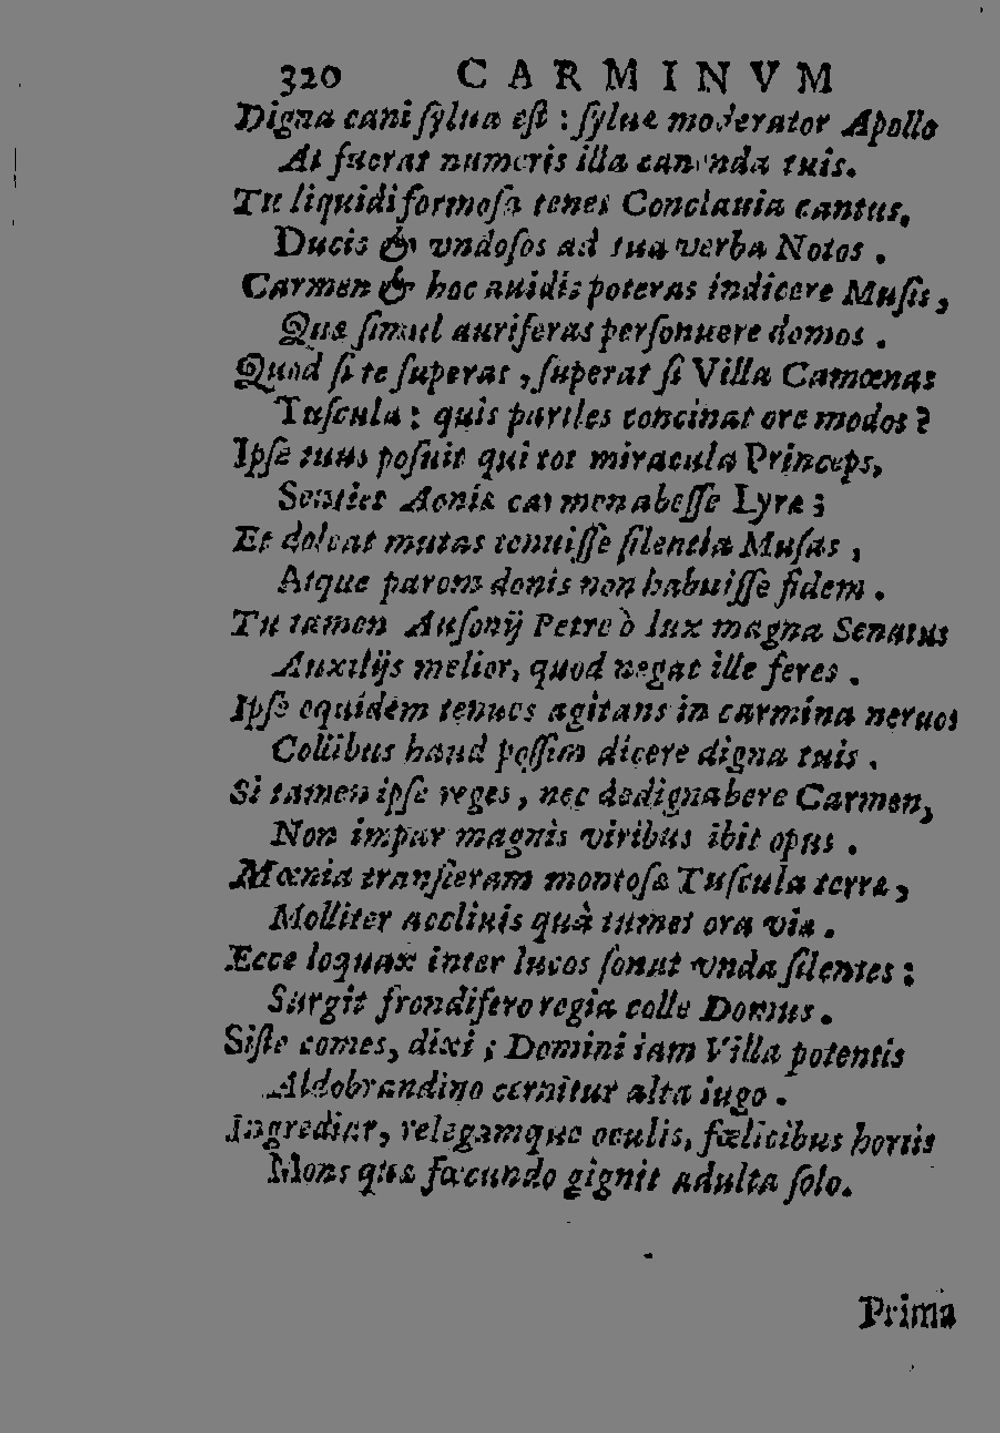 320 CARMINVM
Digna cani ſylua eſt : ſyluæ moderator Apollo
At fuerat numeris illa canenda tuis.
Tu liquidi formoſa tenes Conclauia cantus,
Ducis & vndoſos ad tua verba Notos .
Carmen & hoc auidis poteras indicere Muſis,
Quæ ſimul auriferas perſonuere domos .
Quod ſi te ſuperat , ſuperat ſi Villa Camœnas
Tuſcula : quis pariles concinat ore modos ?
Ipſe tuus poſuit qui tot miracula Princeps,
Sentiet Aoniæ carmen abeſſe Lyræ ;
Et doleat mutas tenuiſſe ſilentia Muſas ,
Atque parem donis non habuiſſe fidem .
Tu tamen Auſonij Petre ò lux magna Senatus
Auxilijs melior, quod negat ille feres .
Ipſe equidem tenues agitans in carmina neruos
Collibus haud poſſim dicere digna tuis .
Si tamen ipſe reges , nec dedignabere Carmen,
Non impar magnis viribus ibit opus .
Mœnia tranſieram montoſæ Tuſcula terræ,
Molliter accliuis quà tumet ora viæ .
Ecce loquax inter lucos ſonat vnda ſilentes :
Surgit frondifero regia colle Domus .
Siſte comes, dixi ; Domini iam Villa potentis
Aldobrandino cernitur alta iugo .
Ingrediar, relegamque oculis, fœlicibus hortis
Mons quæ fæcundo gignit adulta ſolo.
Prima